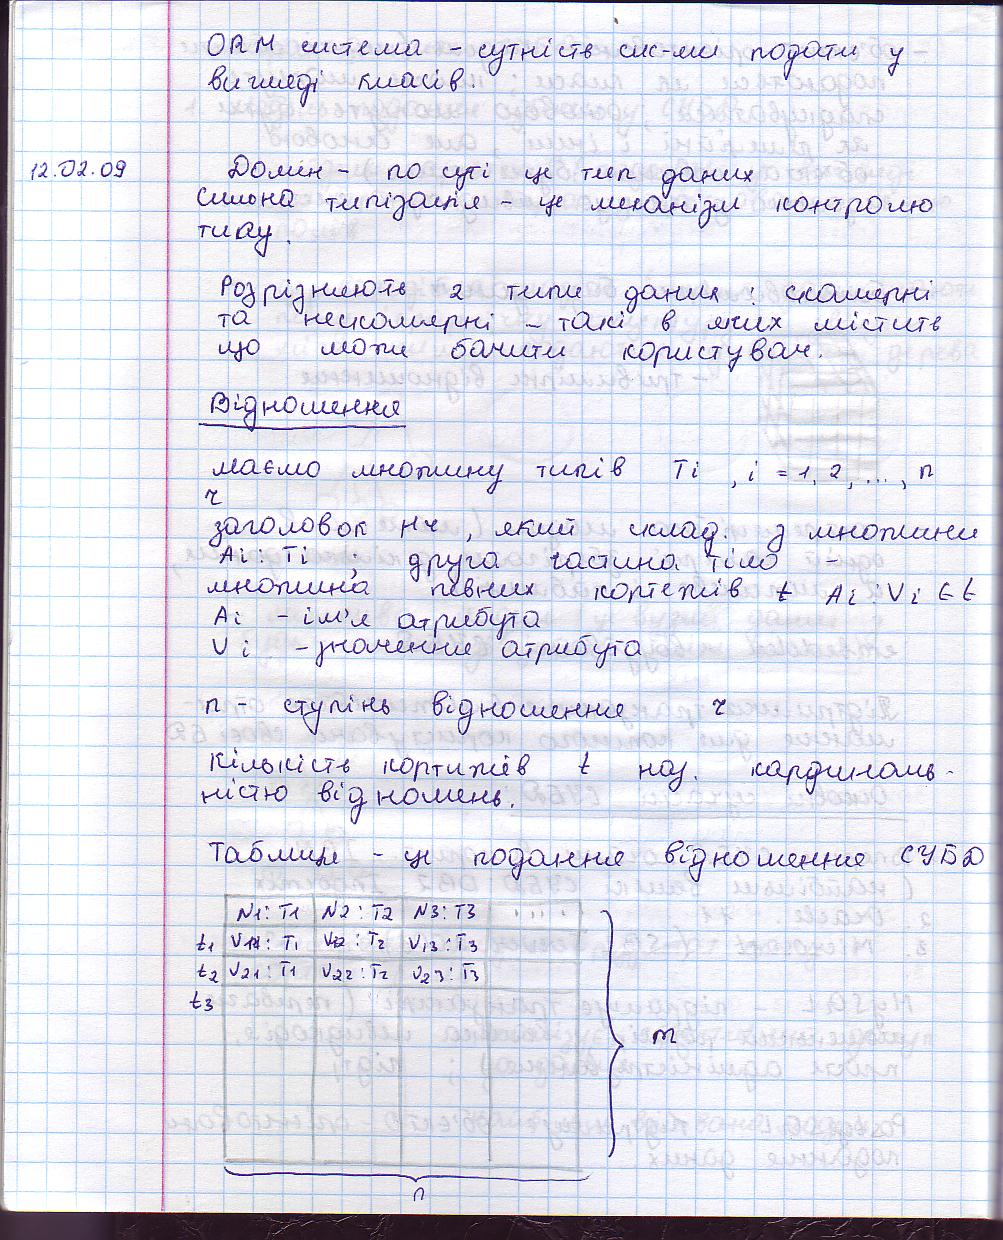 ORM система - сутність сис-ми подати у
вигляді класів.
12.02.09 Домін - по суті це тип даних
Сильна типізація - це механізм контролю
типу.
Розрізнюють 2 типи даних: скалярні
та нескалярні - такі в яких містить
що може бачити користувач.
Відношення
маємо множину типів Ti , i = 1, 2, ..., n
r
заголовок Hr , який склад. з множини
Ai : Ti ; друга частина тіло -
множина певних кортежів t Ai : Vi ∈ t
Ai - ім'я атрибута
Vi - значення атрибута
n - ступінь відношення r
Кількість кортижів t наз. кардиналь-
ністю відномень.
Таблиця - це подання відношення СУБД
N1: T1 N2: T2 N3: T3 .....
t1 V11: T1 V12: T2 V13: T3
t2 V21: T1 V22: T2 V23: T3
t3
m
n